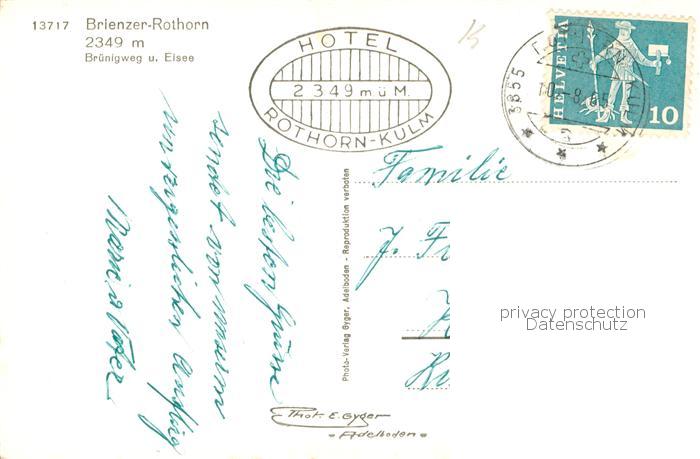 13717 Brienzer-Rothorn
2349 m
Brünigweg u. Eisee
HOTEL
2349 m ü M.
ROTHORN-KULM
HELVETIA
10
3855
10.-8.65
Die besten Grüsse
sendet von unserem
unvergesslichen Ausflug
Mami & Vater
Photo-Verlag Gyger, Adelboden - Reproduktion verboten
Familie
J. Fr
privacy protection
Datenschutz
Phot. E. Gyger
Adelboden